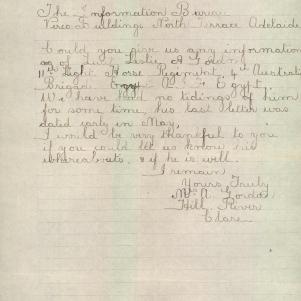 The Information Bureau
Vereo Buildings North Terrace Adelaide
Could you give us any information
as of Lieut Leslie A Gordon
11th Light Horse Regiment, 4th Australi
Brigade Egypt A. I. F. Egypt.
We have had no tidings of him
for some time his last letter was
dated early in May,
I would be very thankful to you
if you could let us know his
whereabouts. & if he is well.
I remain
Yours Truly
A. Gordon
Hill River
Clare